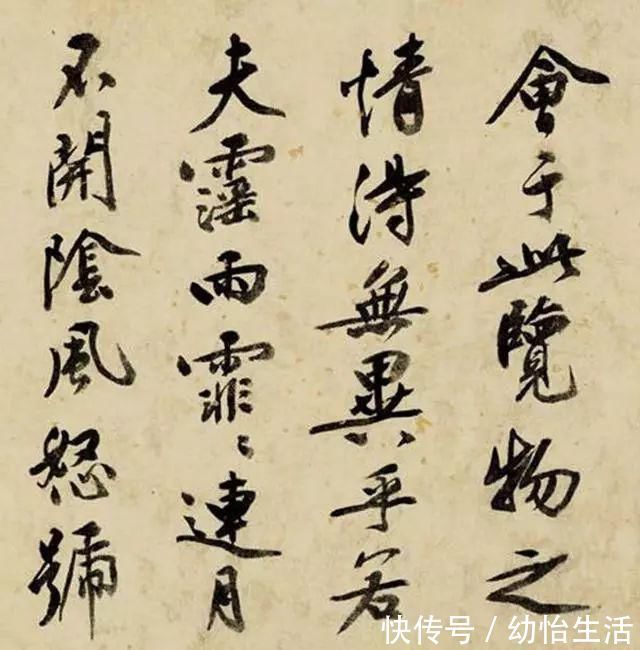 會于此覽物之
情得無異乎若
夫霪雨霏〻連月
不開陰風怒號
快传号/幼怡生活